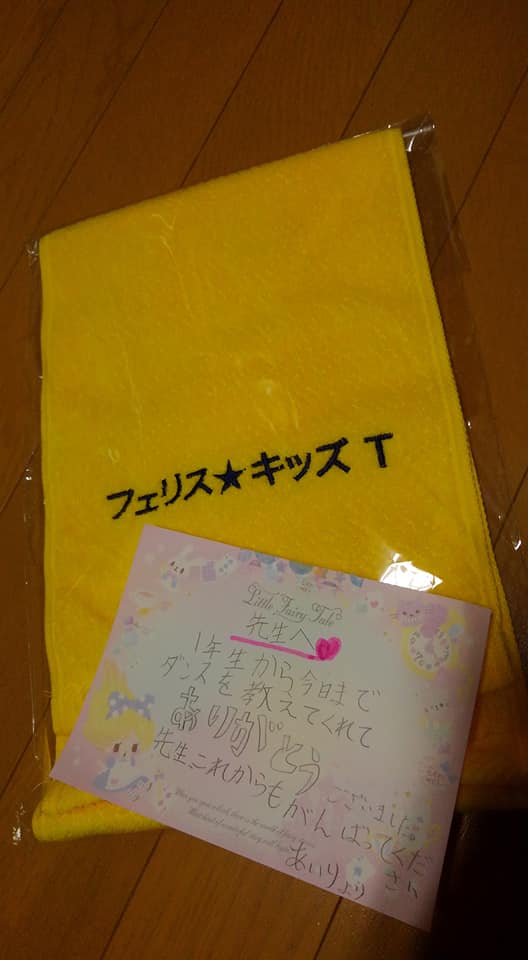 フェリス★キッズ T
Little Fairy Tale
先生へ
1年生から今日まで
ダンスを教えてくれて
ありがとう
ございました
先生、これからもがんばってくだ
さい
あいりより